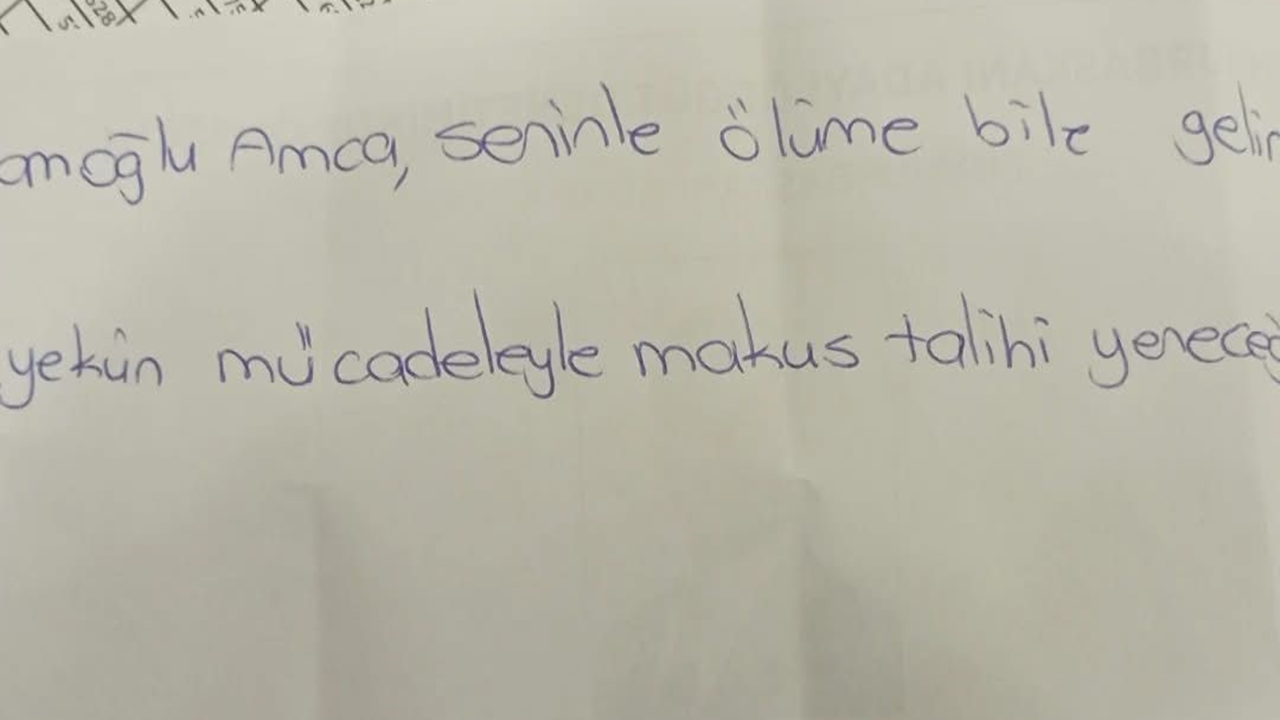 amoğlu Amca, seninle ölüme bile gelir
yekün mücadeleyle makus talihi yeneceğ